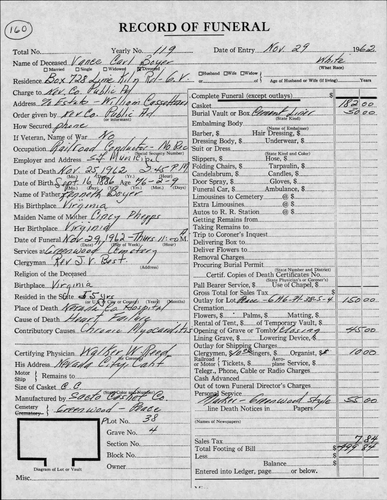 160
RECORD OF FUNERAL
Total No. Yearly No. 119 Date of Entry Nov. 29 1962
Name of Deceased Vance Earl Boyer White
Married Single Widowed Divorced (What Race)
Residence Box 728 Lime Kiln Rd - G.V. Husband Wife Widow Age of Husband or Wife (If living)
Charge to Nev. Co. Public Ad
Address % Estate - William
Order given by Nev. Co. Public Ad
How Secured phone
If Veteran, Name of War No
Occupation Railroad Conductor
Employer and Address
Date of Death Nov. 25, 1962 2:45 P.M.
Date of Birth Sept. 16, 1886 76-2-9
Name of Father Boyer
His Birthplace Virginia
Maiden Name of Mother Phipps
Her Birthplace Virginia
Date of Funeral Nov 29, 1962 - Thurs 11:00 M.
Services at Greenwood Cemetery
Clergyman Rev. J.V. Best
(Address)
Religion of the Deceased
Birthplace Virginia
Resided in the State 55 yrs
Place of Death Nevada Co. Hospital
Cause of Death Heart Failure
Contributory Causes Chronic Myocarditis
Certifying Physician Walker W. Reed
His Address Nevada City, Calif
Motor Ship Remains to
Size of Casket
(State Color and Number)
Manufactured by Sacto Casket Co.
Cemetery
Crematory Greenwood - Place
Plot No. 38
Grave No. 4
Section No.
Block No.
Owner
Diagram of Lot or Vault
Misc.
Complete Funeral (except outlays) $
Casket 182 00
Burial Vault or Box Cement Liner 50 00
(State Kind)
Embalming Body
(Name of Embalmer)
Barber, $ Hair Dressing, $
Dressing Body, $ Underwear, $
Suit or Dress
(State Kind and Color)
Slippers, $ Hose, $
Folding Chairs, $ Tarpaulin, $
Candelabrum, $ Candles, $
Door Spray, $ Gloves, $
Funeral Car, $ Ambulance, $
Limousines to Cemetery @ $
Extra Limousines @ $
Autos to R. R. Station @ $
Getting Remains from
Taking Remains to
Trip to Coroner's Inquest
Delivering Box to
Deliver Flowers to
Removal Charges
Procuring Burial Permit
(State District and Number)
Certif. Copies of Death Certificates No.
(State Physician's or Coroner's)
Pall Bearer Service, $ Use of Chapel, $
Gross Total for Sales Tax
Outlay for Lot 150 00
Cremation
Flowers, $ Palms, $ Matting, $
Rental of Tent, $ of Temporary Vault, $
Opening of Grave or Tomb closing 45 00
Lining Grave, $ Lowering Device, $
Outlay for Shipping Charges
Clergymen, $ 10 00 Singers, $ Organist, $ 10 00
Motor or Airplane Tickets, $ service, $
Teleg., Phone, Cable or Radio Charges
Cash Advanced
Out of town Funeral Director's Charges
Personal Service
Marker - Greenwood Style 55 00
line Death Notices in Papers
(Names of Newspapers)
Sales Tax 7 84
Total Footing of Bill $ 499 84
Less
Balance $
Entered into Ledger, page or below.